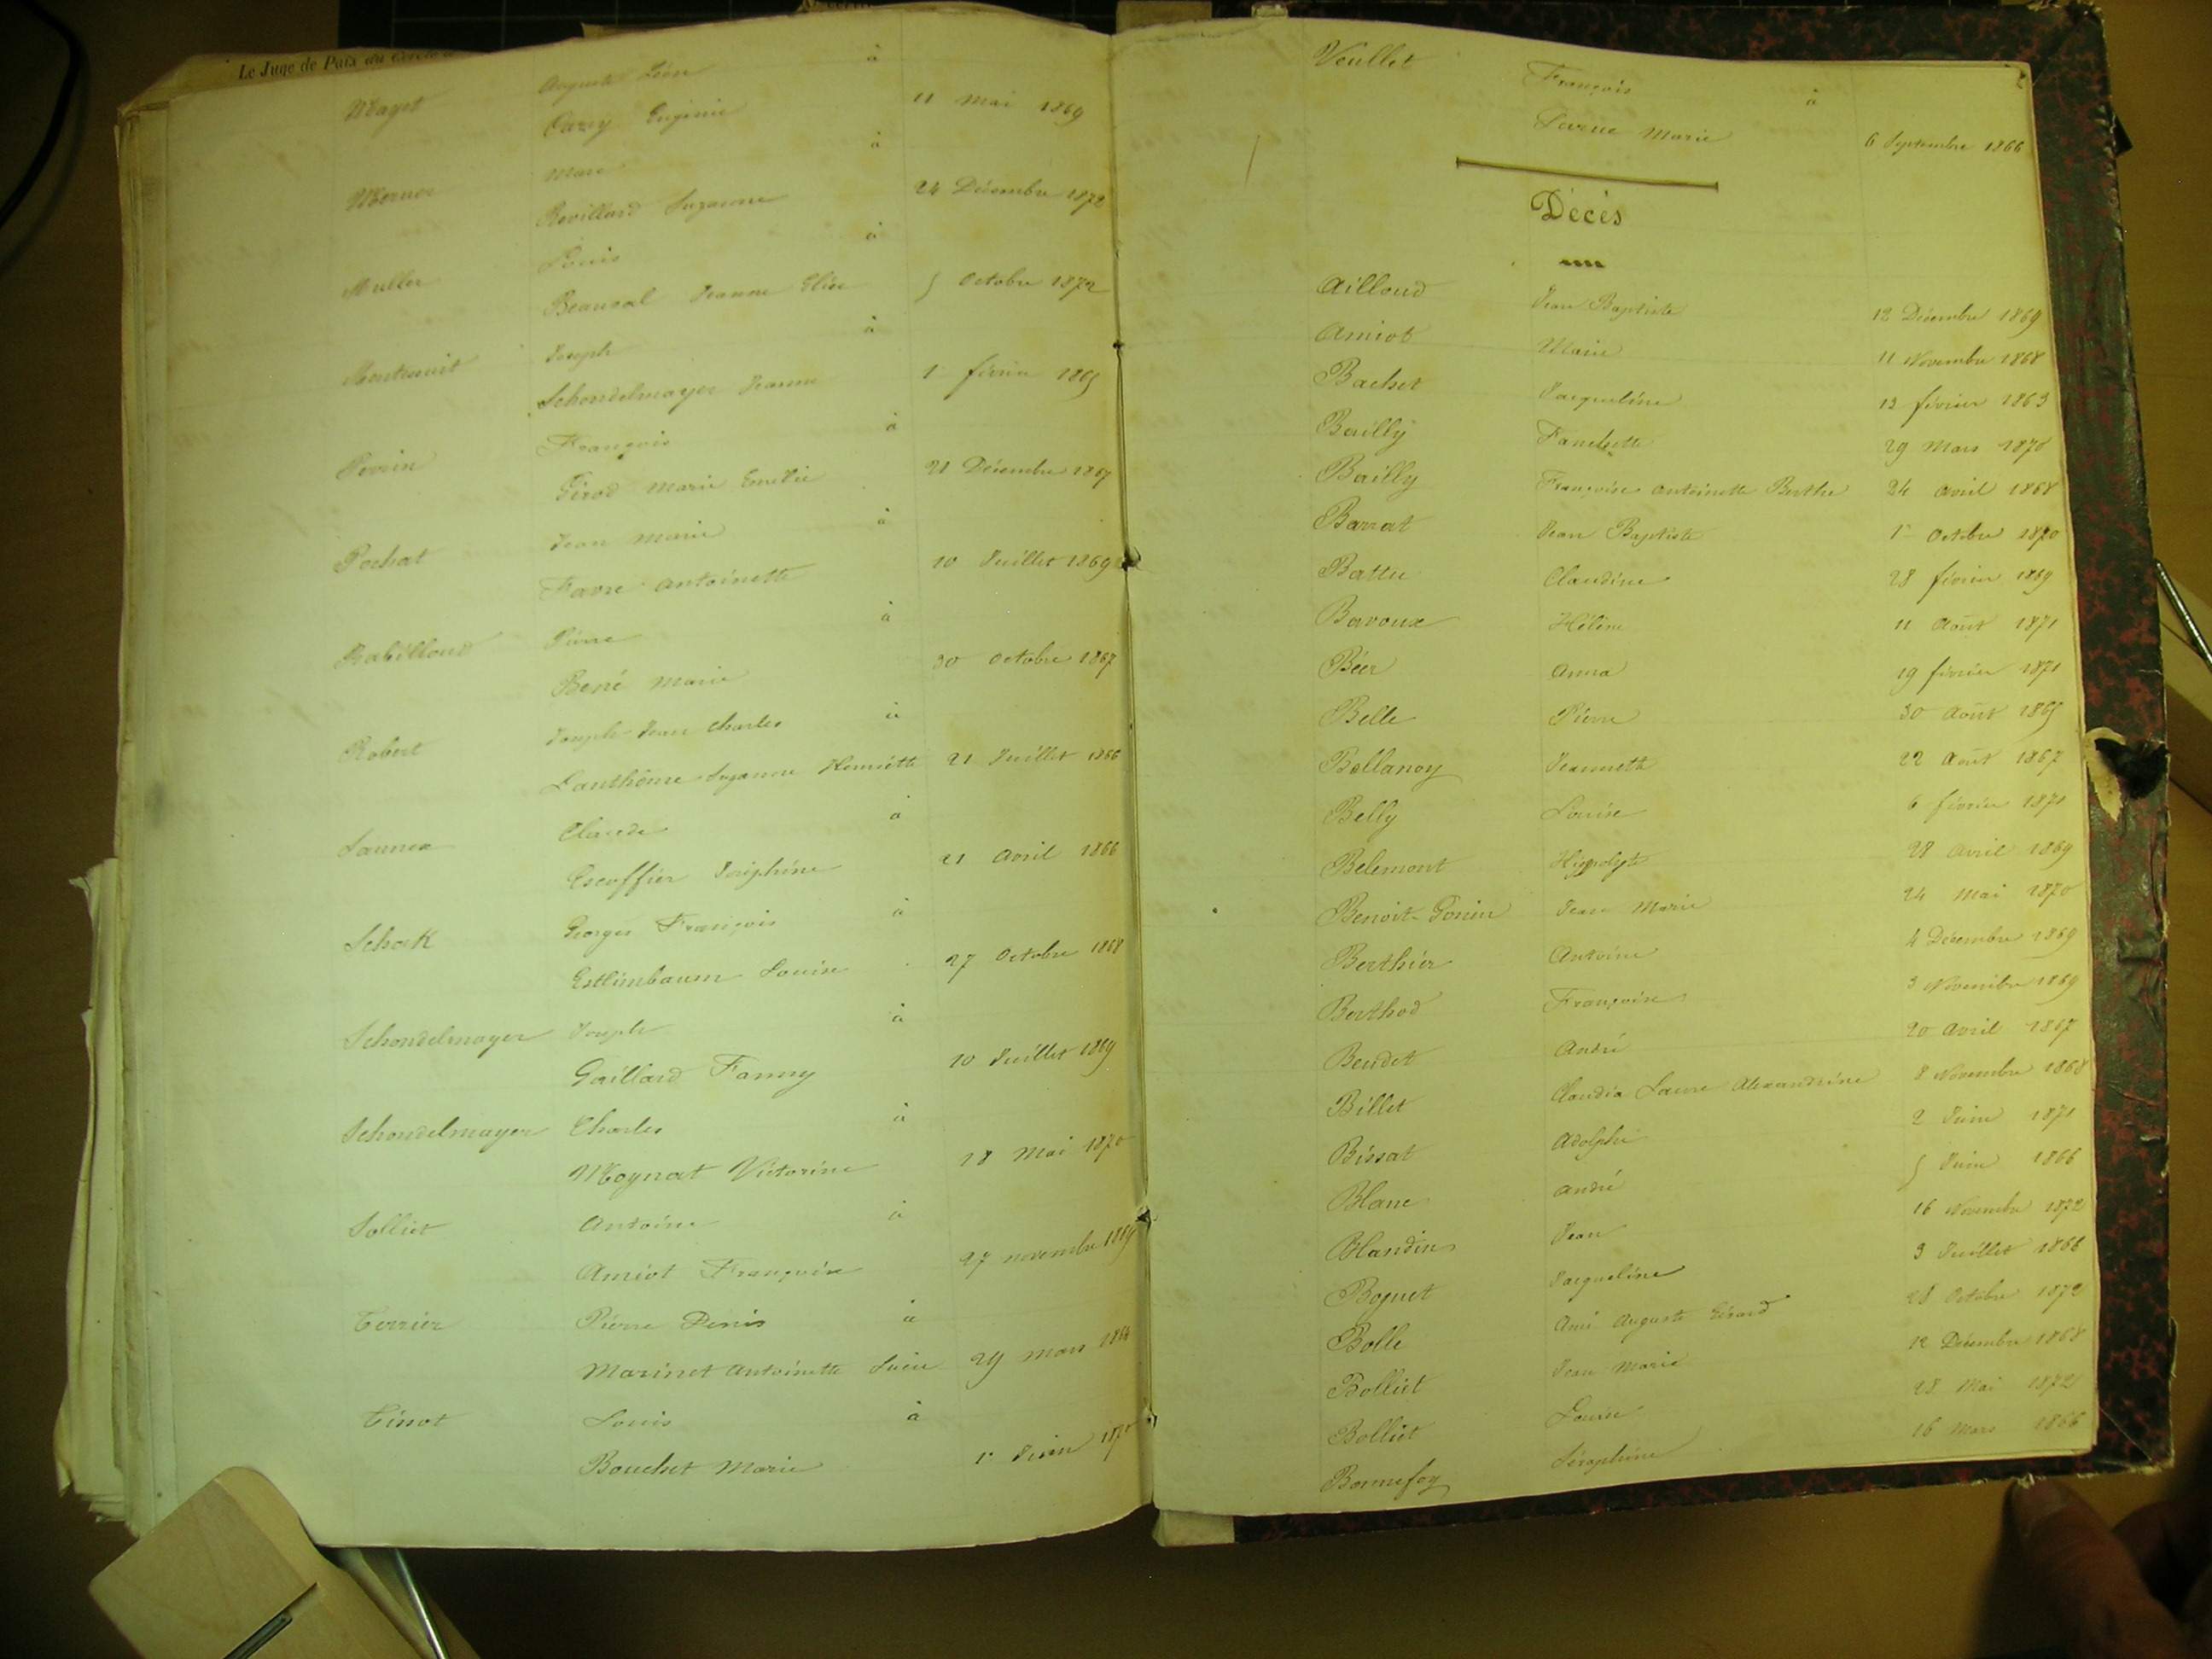 Le Juge de Paix du Canton
Maget Auguste Léon à
Carry Eugénie 11 Mai 1869
Mernor Marc à
Revillard Suzanne 24 Décembre 1872
Muller Louis à
Beauval Jeanne Elise 5 Octobre 1872
Joseph à
Schondelmayer Jeanne 1r février 1865
Perrin François à
Girod Marie Emélie 21 Décembre 1867
Pochat Jean Marie à
Favre Antoinette 10 Juillet 1869
Rabilloud Pierre à
René Marie 30 Octobre 1867
Robert Joseph Jean Charles à
Lanthôme Suzanne Henriette 21 Juillet 1866
Claude à
Escoffier Joséphine 21 Avril 1866
Schak Georges François à
Estlimbaum Louise 27 Octobre 1868
Schondelmayer Joseph à
Gaillard Fanny 10 Juillet 1869
Schondelmayer Charles à
Moynat Victorine 18 Mai 1870
Solliet Antoine à
Amiot Françoise 27 novembre 1869
Terrier Pierre Denis à
Marinet Antoinette 29 mars 1866
Tinot Louis à
Bouchet Marie 1r Juin 1870
Veullet François à
Marie 6 Septembre 1866
Décès
Ailloud Jean Baptiste 12 Décembre 1869
Amiot Marie 11 Novembre 1868
Bachet Jacqueline 13 février 1863
Bailly Fanchette 29 Mars 1870
Bailly Françoise Antoinette Berthe 24 Avril 1868
Barrat Jean Baptiste 1r Octobre 1870
Battu Claudine 28 février 1869
Bavoux Hélène 11 Août 1871
Béer Anna 19 février 1871
Belle Pierre 30 Août 1865
Bellanoy Jeannette 22 Août 1867
Belly Louise 6 février 1871
Belemont Hippolyte 28 Avril 1869
Benoit-Gonin Jean Marie 24 Mai 1870
Berthier Antoine 4 Décembre 1869
Berthod Françoise 3 Novembre 1869
Beudet André 20 Avril 1867
Billet Claudia Laure Alexandrine 8 Novembre 1868
Bissat Adolphe 2 Juin 1871
Blanc André 5 Juin 1866
Blandin Jean 16 Novembre 1872
Boguet Jacqueline 3 Juillet 1866
Bolle Ami Auguste Gérard 28 Octobre 1872
Bolliet Jean Marie 12 Décembre 1868
Bolliet Louise 28 Mai 1872
Bonnefoy Séraphine 16 Mars 1866